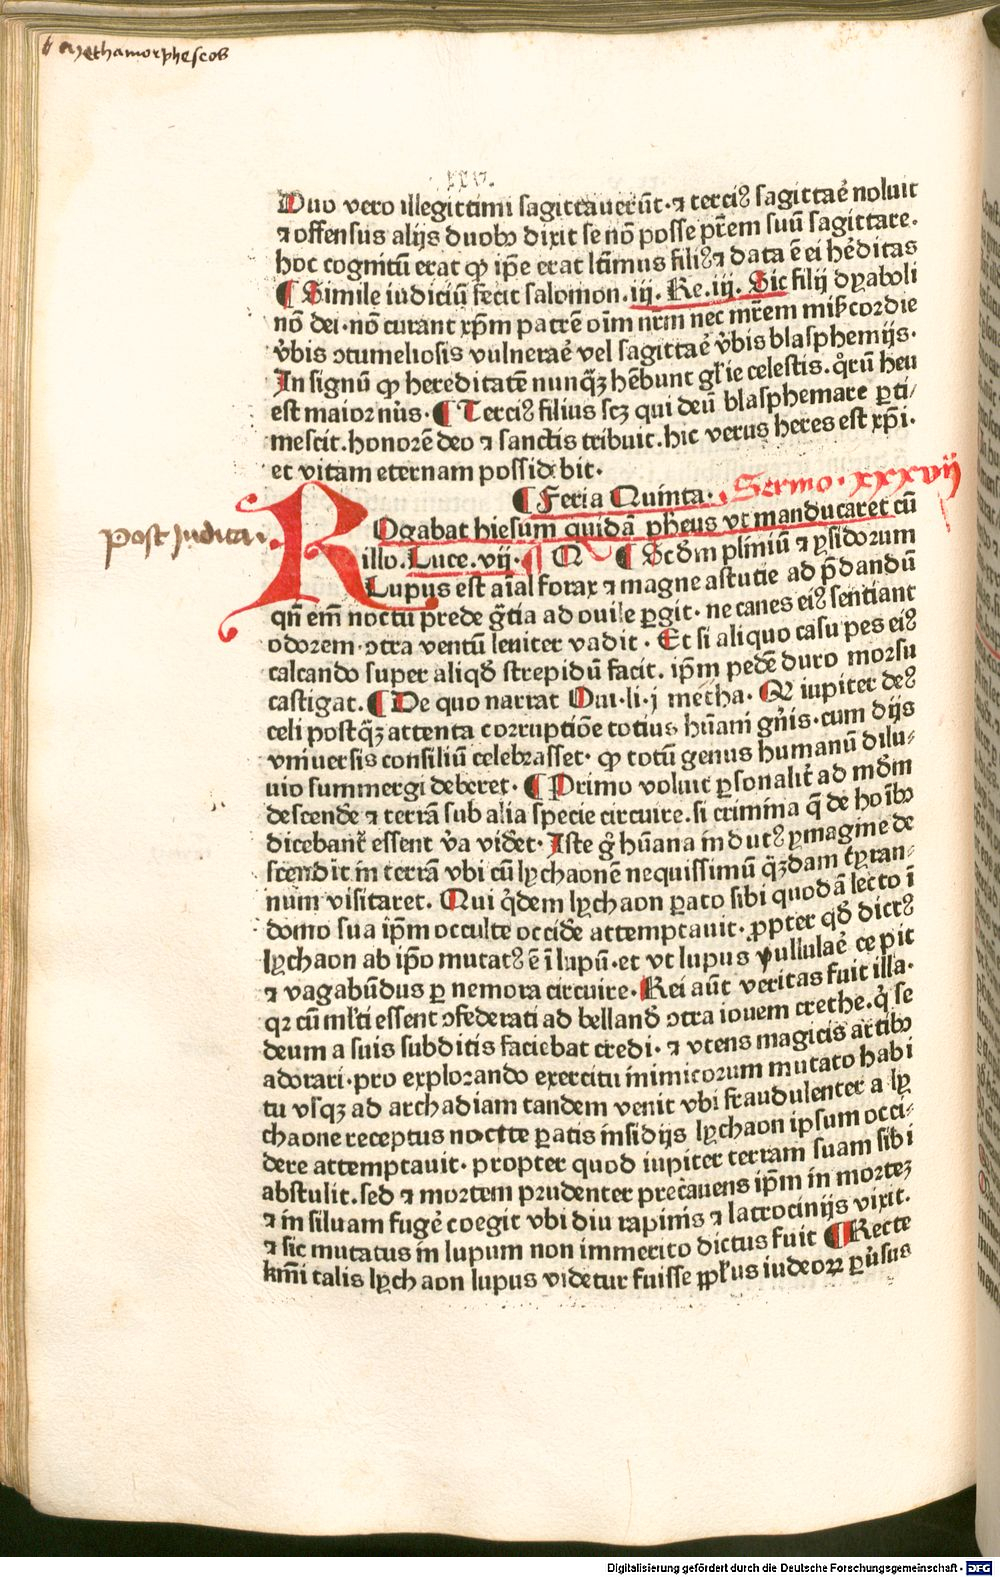 Methamorphescos
Duo vero illegittimi sagittauerūt · ⁊ terciꝰ sagittaē noluit
⁊ offensus alijs duobꝫ dixit se nō posse pr̄em suū sagittare.
hoc cognitū erat ꝙ ip̄e erat ltīmus filiꝰ ⁊ data ē ei hēditas
¶ Simile iudiciū fecit salomon. iij. Re. iij. Sic filij dyaboli
nō dei · nō curant xp̄m patrē oīm nrm nec mr̄em mīcordie
v̄bis ↄtumeliosis vulneraē vel sagittaē v̄bis blasphemijs ·
In signū ꝙ hereditatē nunq̄ꝫ hēbunt gl̄ie celestis. qr̄ū heu
est maior nūs · ¶ Terciꝰ filius scꝫ qui deū blasphemare ꝑti/
mescit. honorē deo ⁊ sanctis tribuit. hic verus heres est xp̄i.
et vitam eternam possidebit ·
¶ Feria Quinta · Sermo · xxxvij
post Judica ·
ROgabat hiesum quidā pheus vt manducaret cū
illo. Luce. vij. ¶ Q ¶ Scd̄m pliniū ⁊ ysidorum
Lupus est aīal forax ⁊ magne astutie ad p̄dandū
qn̄ em̄ noctu prede gr̄tia ad ouile ꝑgit · ne canes eiꝰ sentiant
odorem · ↄtra ventū leniter vadit · Et si aliquo casu pes eiꝰ
calcando super aliqd̄ strepidū facit. ip̄m pedē duro morsu
castigat. ¶ De quo narrat Oui · li · j metha · Q iupiter deꝰ
celi postq̄ꝫ attenta corruptiōe totius hūani gn̄is · cum dijs
vniuersis consiliū celebrasset · ꝙ totū genus humanū dilu-
uio summergi deberet · ¶ Primo voluit ꝑsonalit̄ ad mōm
descendē ⁊ terrā sub alia specie circuire. si crimina q̄ de hoībꝫ
dicebant̄ essent v̄a videt · Iste g̊ hūana indutꝰ ymagine de
scendit in terrā vbi cū lychaonē nequissimū q̄ꝫdam tyran-
num visitaret. Qui q̇dem lychaon ꝑato sibi quodā lecto ī
domo sua ip̄m occulte occidē attemptauit · ꝓpter qd̄ dictꝰ
lychaon ab ip̄o mutatꝰ ē ī lupū · et vt lupus vllulaē cepit
⁊ vagabūdus ꝑ nemora circuire · Rei aūt veritas fuit illa ·
qꝛ cū ml̄ti essent ↄfederati ad bellandū ↄtra iouem crethe. q̇ se
deum a suis subditis faciebat credi · ⁊ vtens magicis artibꝫ
adorari · pro explorando exercitu inimicorum mutato habi
tu vsqꝫ ad archadiam tandem venit vbi fraudulenter a ly
chaone receptus noctte ꝑatis insidijs lychaon ipsum occi-
dere attemptauit · propter quod iupiter terram suam sibi
abstulit. sed ⁊ mortem prudenter precauens ip̄m in morteꝫ
⁊ in siluam fugē coegit vbi diu rapinis ⁊ latrocinijs vixit.
⁊ sic mutatus in lupum non immerito dictus fuit ¶ Recte
kmī talis lychaon lupus videtur fuisse ppl̄us iudeoꝝ ꝑūsus
Digitalisierung gefördert durch die Deutsche Forschungsgemeinschaft - DFG